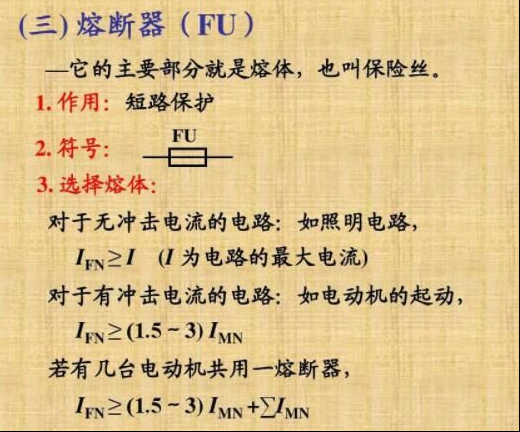 (三) 熔断器（FU）
—它的主要部分就是熔体，也叫保险丝。
1. 作用：短路保护
2. 符号： FU
3. 选择熔体：
对于无冲击电流的电路：如照明电路，
I_FN≥I (I 为电路的最大电流)
对于有冲击电流的电路：如电动机的起动，
I_FN≥(1.5~3) I_MN
若有几台电动机共用一熔断器，
I_FN≥(1.5~3) I_MN+∑I_MN